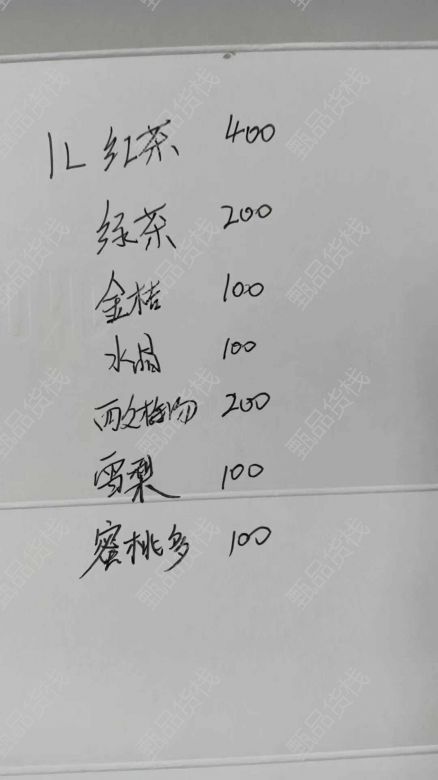 1L 红茶 400
绿茶 200
金桔 100
水晶 100
200
雪梨 100
蜜桃多 100
甄品货栈